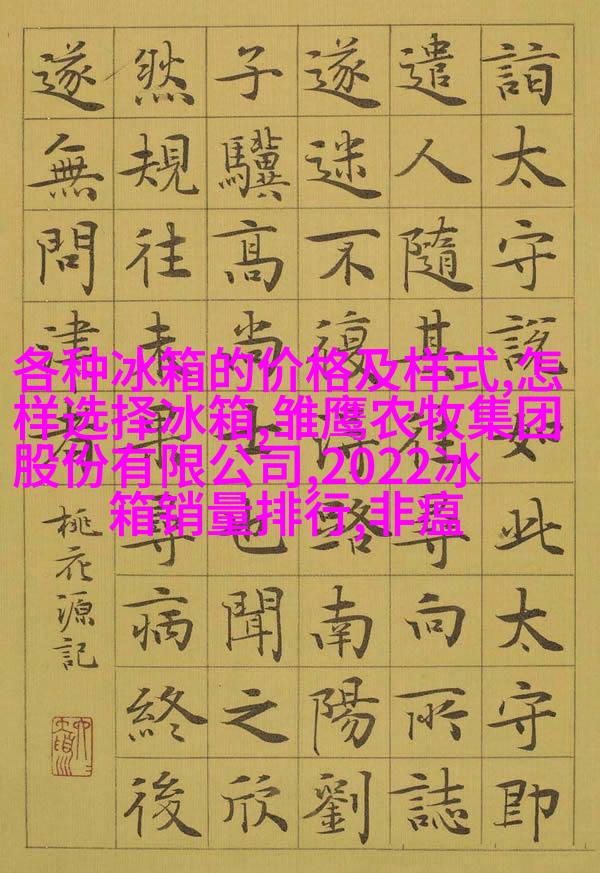 詣太守說如此太守即
遣人隨其往尋向所誌
遂迷不復得路南陽劉
子驥高尚士也聞之欣
然規往未果尋病終後
遂無問津者
桃花源記
各种冰箱的价格及样式,怎
样选择冰箱,雏鹰农牧集团
股份有限公司,2022冰
箱销量排行,非瘟